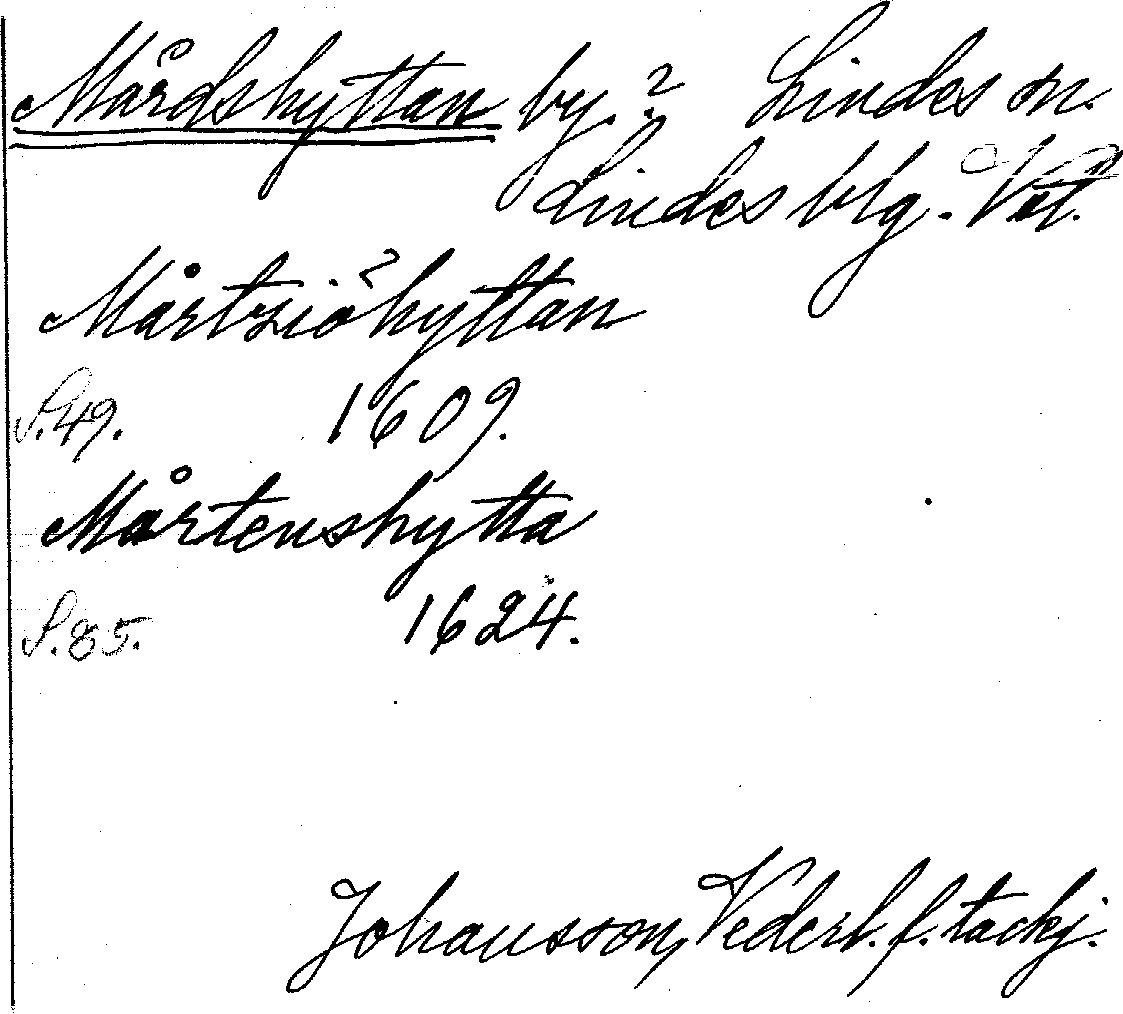 Mårdshyttan by.? Lindes sn.
Lindes blg.
Mårtziöhyttan ?
S.49. 1609.
Mårtenshytta
S.85. 1624.
Johansson, Vederl. f. tackj.